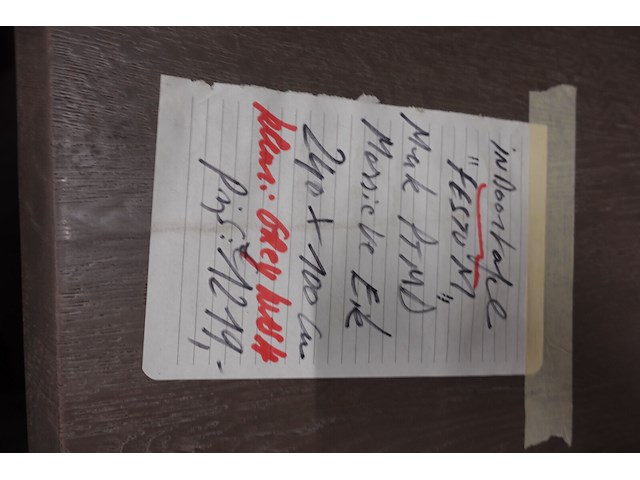 inDoortafel
"FESTON"
Merk PTMD
Massieve Eik
240 X 100 cm
kleur: Grey Wash
Prijs: 1219,-